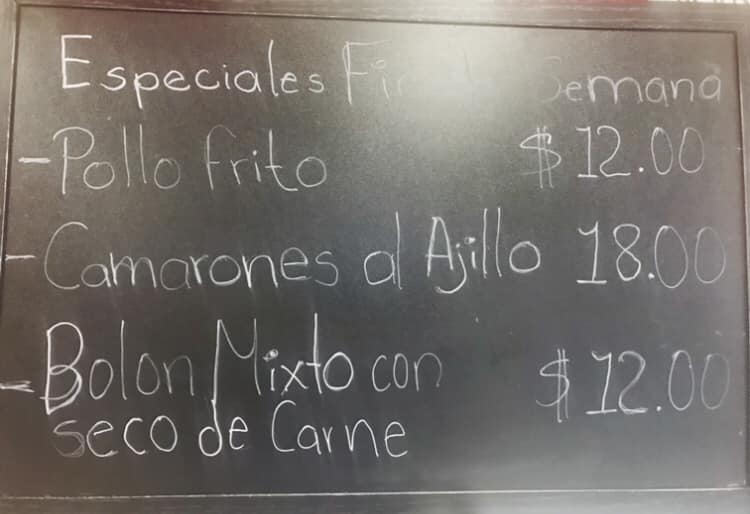 Especiales Semana
- Pollo frito $ 12.00
- Camarones al Ajillo 18.00
- Bolon Mixto con $ 12.00
seco de Carne